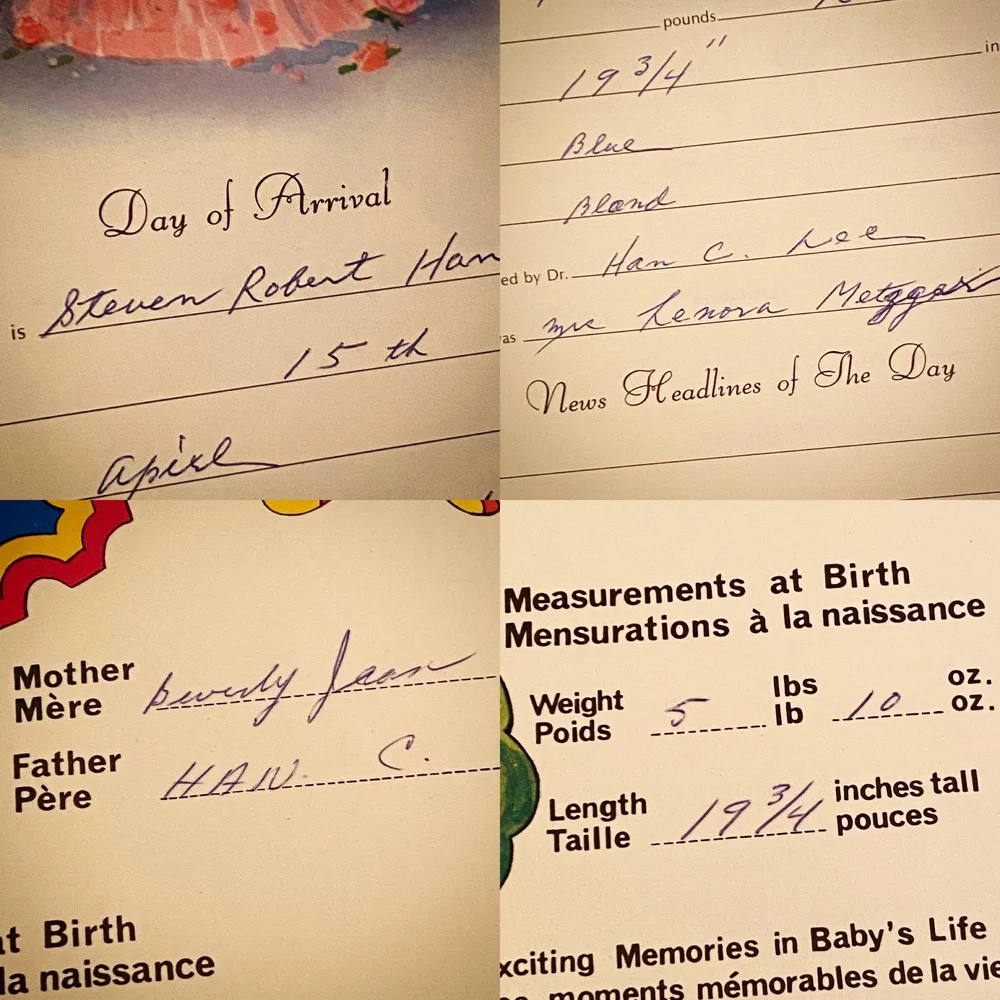 Day of Arrival
is Steven Robert Han
15 th
Apirl
pounds
19 3/4" in
Blue
Blond
ed by Dr. Han C. Lee
as Mrs Lenora Metzgar
News Headlines of The Day
Mother
Mère Beverly Jean
Father
Père HAN. C.
at Birth
la naissance
Measurements at Birth
Mensurations à la naissance
Weight 5 lbs 10 oz.
Poids lb oz.
Length 19 3/4 inches tall
Taille pouces
xciting Memories in Baby's Life
moments mémorables de la vie